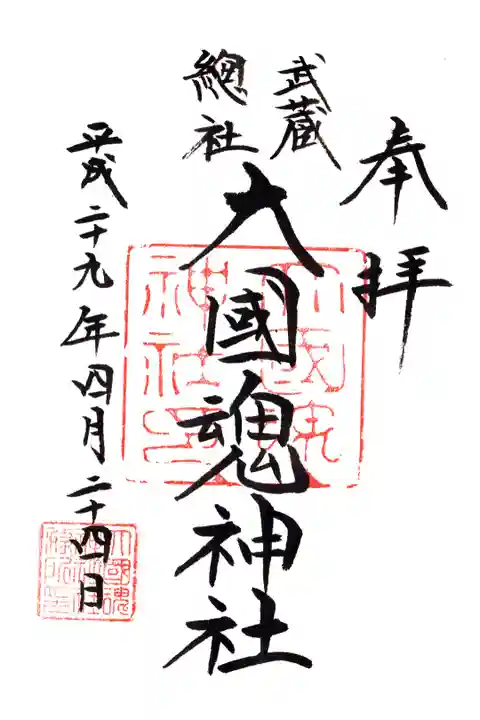 奉拝
武蔵
總社
大國魂神社
平成二十九年四月二十四日
大國魂
神社印